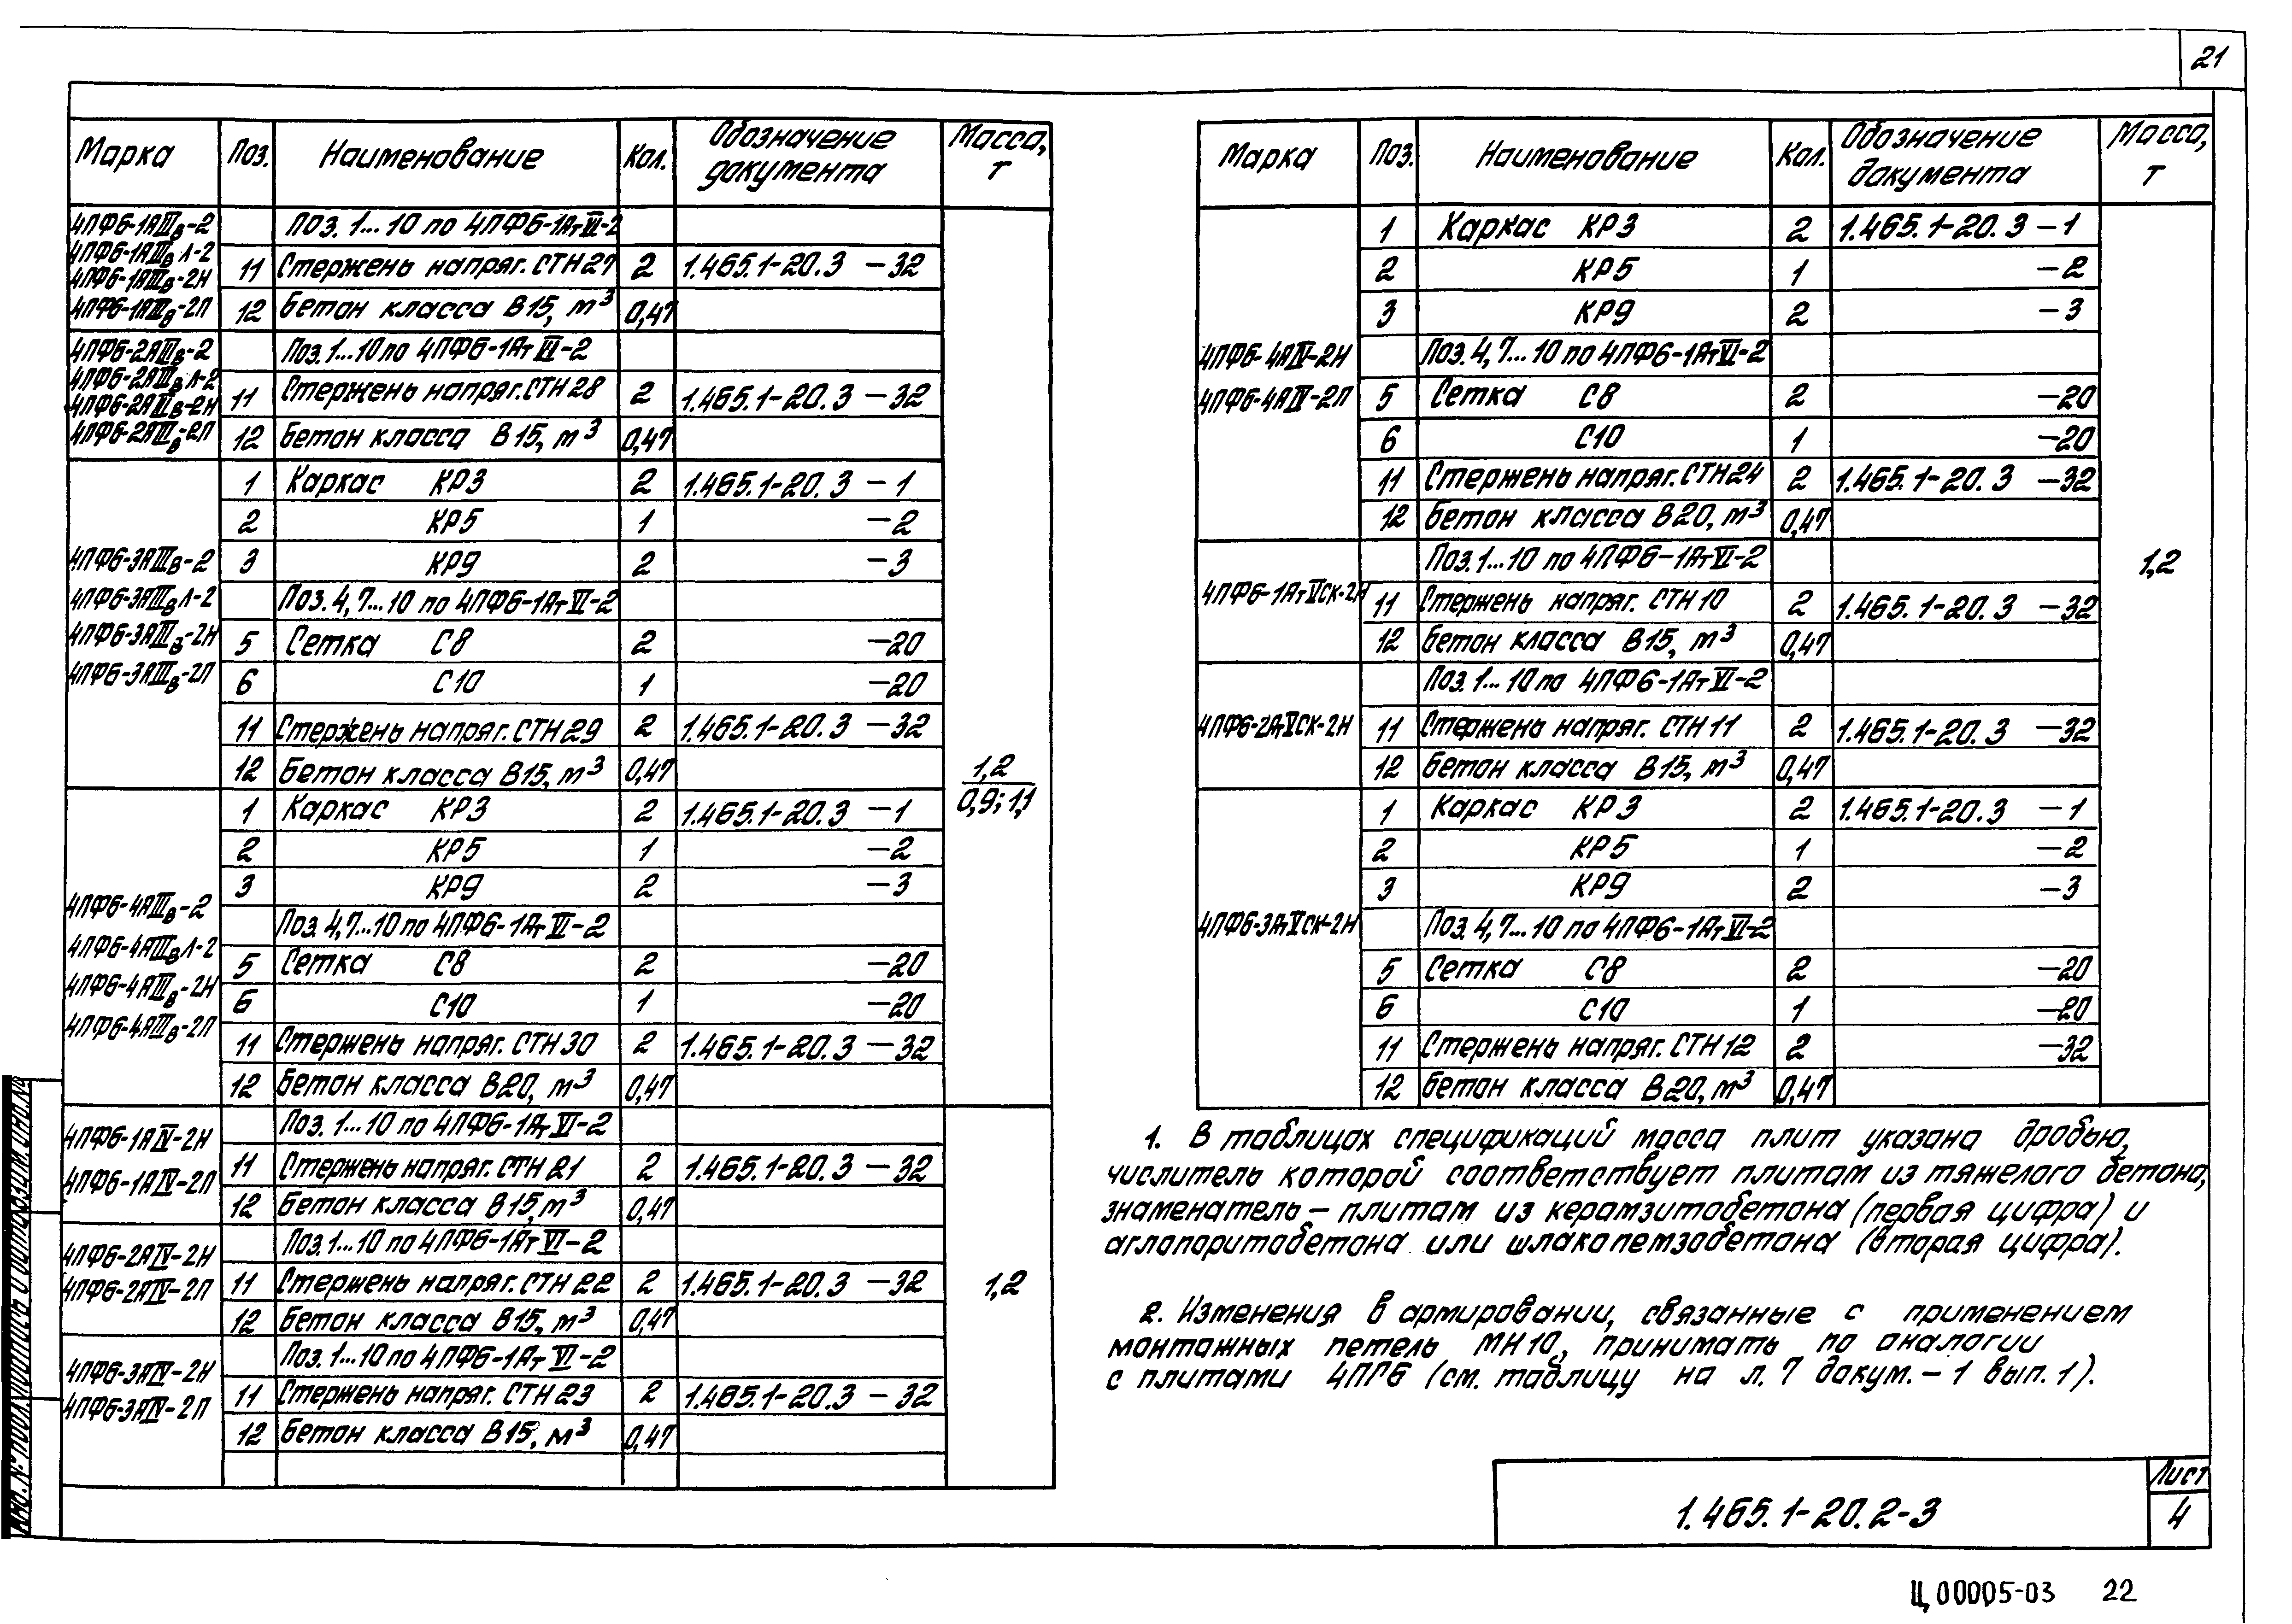 21
Марка Поз. Наименование Кол. Обозначение документа Масса, т
4ПФ6-1АIIIв-2
4ПФ6-1АIIIвЛ-2
4ПФ6-1АIIIв-2Н
4ПФ6-1АIIIв-2П
Поз. 1...10 по 4ПФ6-1АтVI-2
11 Стержень напряг. СТН27 2 1.465.1-20.3 -32
12 Бетон класса В15, м³ 0,47
4ПФ6-2АIIIв-2
4ПФ6-2АIIIвЛ-2
4ПФ6-2АIIIв-2Н
4ПФ6-2АIIIв-2П
Поз. 1...10 по 4ПФ6-1АтVI-2
11 Стержень напряг. СТН28 2 1.465.1-20.3 -32
12 Бетон класса В15, м³ 0,47
4ПФ6-3АIIIв-2
4ПФ6-3АIIIвЛ-2
4ПФ6-3АIIIв-2Н
4ПФ6-3АIIIв-2П
1 Каркас КР3 2 1.465.1-20.3 -1
2 КР5 1 -2
3 КР9 2 -3
Поз. 4,7...10 по 4ПФ6-1АтVI-2
5 Сетка С8 2 -20
6 С10 1 -20
11 Стержень напряг. СТН29 2 1.465.1-20.3 -32
12 Бетон класса В15, м³ 0,47
1,2
0,9; 1,1
4ПФ6-4АIIIв-2
4ПФ6-4АIIIвЛ-2
4ПФ6-4АIIIв-2Н
4ПФ6-4АIIIв-2П
1 Каркас КР3 2 1.465.1-20.3 -1
2 КР5 1 -2
3 КР9 2 -3
Поз. 4,7...10 по 4ПФ6-1АтVI-2
5 Сетка С8 2 -20
6 С10 1 -20
11 Стержень напряг. СТН30 2 1.465.1-20.3 -32
12 Бетон класса В20, м³ 0,47
4ПФ6-1АIV-2Н
4ПФ6-1АIV-2П
Поз. 1...10 по 4ПФ6-1АтVI-2
11 Стержень напряг. СТН21 2 1.465.1-20.3 -32
12 Бетон класса В15, м³ 0,47
4ПФ6-2АIV-2Н
4ПФ6-2АIV-2П
Поз. 1...10 по 4ПФ6-1АтVI-2
11 Стержень напряг. СТН22 2 1.465.1-20.3 -32
12 Бетон класса В15, м³ 0,47
1,2
4ПФ6-3АIV-2Н
4ПФ6-3АIV-2П
Поз. 1...10 по 4ПФ6-1АтVI-2
11 Стержень напряг. СТН23 2 1.465.1-20.3 -32
12 Бетон класса В15, м³ 0,47
Марка Поз. Наименование Кол. Обозначение документа Масса, т
4ПФ6-4АIV-2Н
4ПФ6-4АIV-2П
1 Каркас КР3 2 1.465.1-20.3 -1
2 КР5 1 -2
3 КР9 2 -3
Поз. 4,7...10 по 4ПФ6-1АтVI-2
5 Сетка С8 2 -20
6 С10 1 -20
11 Стержень напряг. СТН24 2 1.465.1-20.3 -32
12 Бетон класса В20, м³ 0,47
4ПФ6-1АтVСК-2Н
Поз. 1...10 по 4ПФ6-1АтVI-2
11 Стержень напряг. СТН10 2 1.465.1-20.3 -32
12 Бетон класса В15, м³ 0,47
1,2
4ПФ6-2АтVСК-2Н
Поз. 1...10 по 4ПФ6-1АтVI-2
11 Стержень напряг. СТН11 2 1.465.1-20.3 -32
12 Бетон класса В15, м³ 0,47
4ПФ6-3АтVСК-2Н
1 Каркас КР3 2 1.465.1-20.3 -1
2 КР5 1 -2
3 КР9 2 -3
Поз. 4,7...10 по 4ПФ6-1АтVI-2
5 Сетка С8 2 -20
6 С10 1 -20
11 Стержень напряг. СТН12 2 -32
12 Бетон класса В20, м³ 0,47
1. В таблицах спецификаций масса плит указана дробью,
числитель которой соответствует плитам из тяжелого бетона,
знаменатель – плитам из керамзитобетона (первая цифра) и
аглопоритобетона или шлакопемзобетона (вторая цифра).
2. Изменения в армировании, связанные с применением
монтажных петель МН10, принимать по аналогии
с плитами 4ПГ6 (см. таблицу на л. 7 докум. -1 вып. 1).
1.465.1-20.2-3
Лист
4
Инв. № подл. Подпись и дата Взам. инв. №
Ц00005-03 22